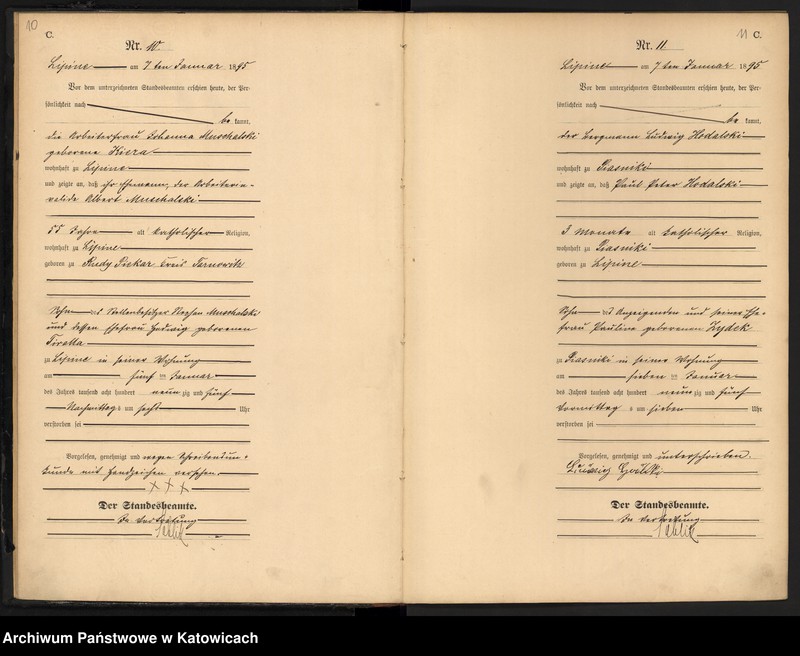 10
C.
Nr. 10.
Lipine am 7ten Januar 1895
Vor dem unterzeichneten Standesbeamten erschien heute, der Per-
sönlichkeit nach
be kannt,
die Arbeiterfrau Johanna Muschalski
geborene Kiera
wohnhaft zu Lipine
und zeigte an, daß ihr Ehemann, der Arbeiterin-
valide Albert Muschalski
55 Jahre alt katholischer Religion,
wohnhaft zu Lipine
geboren zu Rudy Piekar Kreis Tarnowitz
Sohn des Stellenbesitzer Muschalski
und dessen Ehefrau Hedwig geborenen
zu Lipine in seiner Wohnung
am fünf ten Januar
des Jahres tausend acht hundert neun zig und fünf
Nachmittags um sechs Uhr
verstorben sei
Vorgelesen, genehmigt und wegen Schreibensun-
kunde mit Handzeichen versehen.
+ + +
Der Standesbeamte.
In Vertretung
11 C.
Nr. 11
Lipine am 7ten Januar 1895
Vor dem unterzeichneten Standesbeamten erschien heute, der Per-
sönlichkeit nach
be kannt,
der Bergmann Ludwig Hodalski
wohnhaft zu Piasniki
und zeigte an, daß Paul Peter Hodalski
3 Monate alt katholischer Religion,
wohnhaft zu Piasniki
geboren zu Lipine
Sohn des Anzeigenden und seiner Ehe-
frau Pauline geborenen Zydek
zu Piasniki in seiner Wohnung
am sieben ten Januar
des Jahres tausend acht hundert neun zig und fünf
Vormittags um sieben Uhr
verstorben sei
Vorgelesen, genehmigt und unterschrieben
Ludwig
Der Standesbeamte.
In Vertretung
Archiwum Państwowe w Katowicach